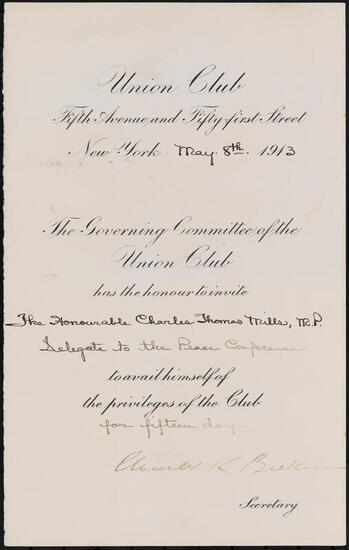 Union Club
Fifth Avenue and Fifty-first Street
New York May 8th. 1913
The Governing Committee of the
Union Club
has the honour to invite
The Honourable Charles Thomas Mills, M.P.
Delegate to the Peace Conference
to avail himself of
the privileges of the Club
for fifteen days.
Charles K
Secretary